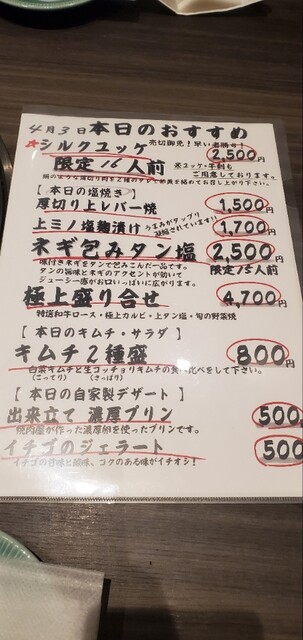 4月3日 本日のおすすめ
売切御免！早い者勝ち！
シルクユッケ 2,500円
限定16人前 ※ユッケ・牛刺も
ご用意しております。
【本日の塩焼き】
厚切り上レバー焼 1,500円
上ミノ塩麹漬け うまみがタップリ凝縮されています!! 1,700円
ネギ包みタン塩 2,500円
味付きネギをタンで包みこんだ一品です。 限定15人前
タンの旨味とネギのアクセントが効いて
ジューシー感がお口いっぱいに広がります。
極上盛り合せ 4,700円
特選和牛ロース・極上カルビ・上タン塩・旬の野菜焼
【本日のキムチ・サラダ】
キムチ2種盛 800円
白菜キムチと生コッチョリキムチの食べ比べをして下さい。
(こってり) (さっぱり)
【本日の自家製デザート】
出来立て 濃厚プリン 500
焼肉屋が作った濃厚卵を使ったプリンです。
イチゴのジェラート 500
イチゴの甘味と酸味、コクのある味がイチオシ！